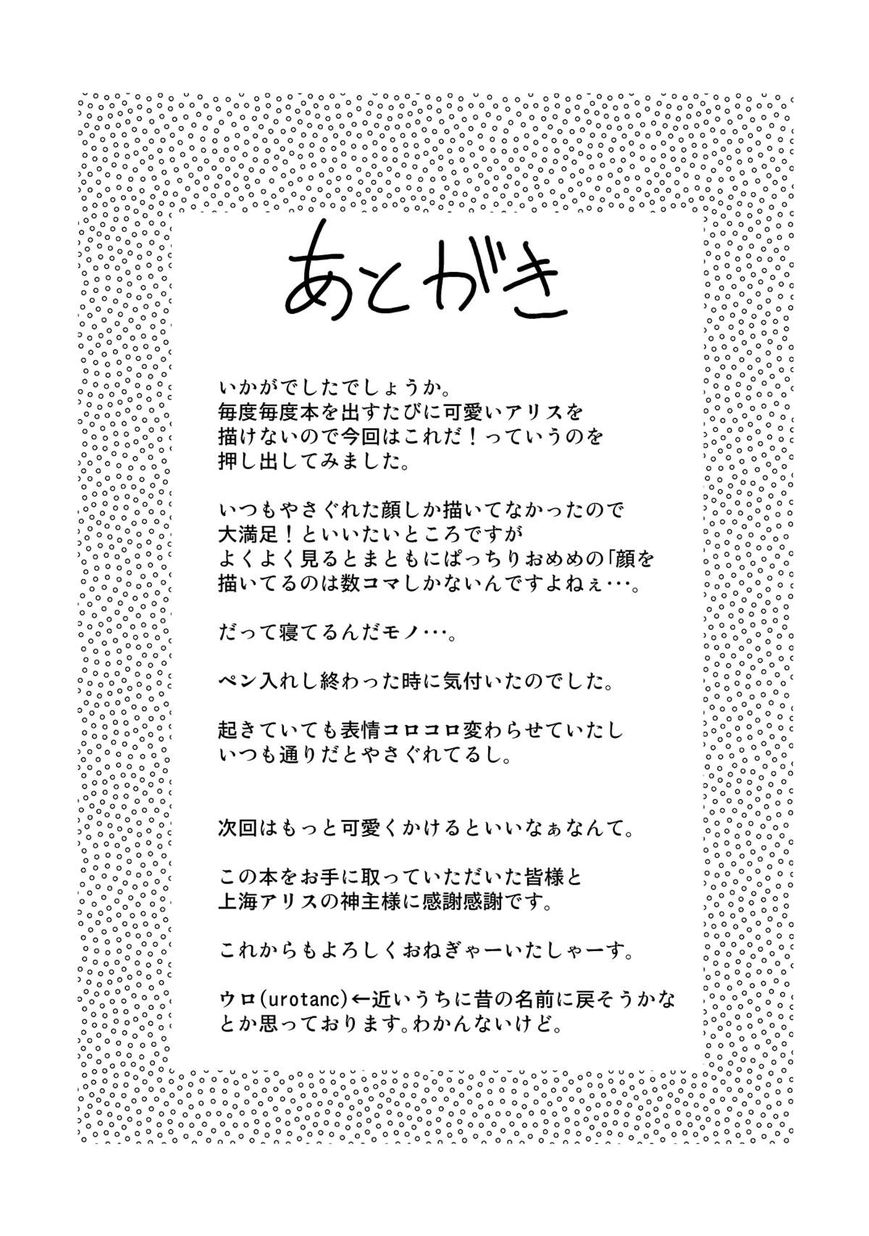 あとがき
いかがでしたでしょうか。
毎度毎度本を出すたびに可愛いアリスを
描けないので今回はこれだ！っていうのを
押し出してみました。
いつもやさぐれた顔しか描いてなかったので
大満足！といいたいところですが
よくよく見るとまともにぱっちりおめめの「顔を
描いてるのは数コマしかないんですよねぇ･･･。
だって寝てるんだモノ･･･。
ペン入れし終わった時に気付いたのでした。
起きていても表情コロコロ変わらせていたし
いつも通りだとやさぐれてるし。
次回はもっと可愛くかけるといいなぁなんて。
この本をお手に取っていただいた皆様と
上海アリスの神主様に感謝感謝です。
これからもよろしくおねぎゃーいたしゃーす。
ウロ(urotanc)←近いうちに昔の名前に戻そうかな
とか思っております｡わかんないけど。